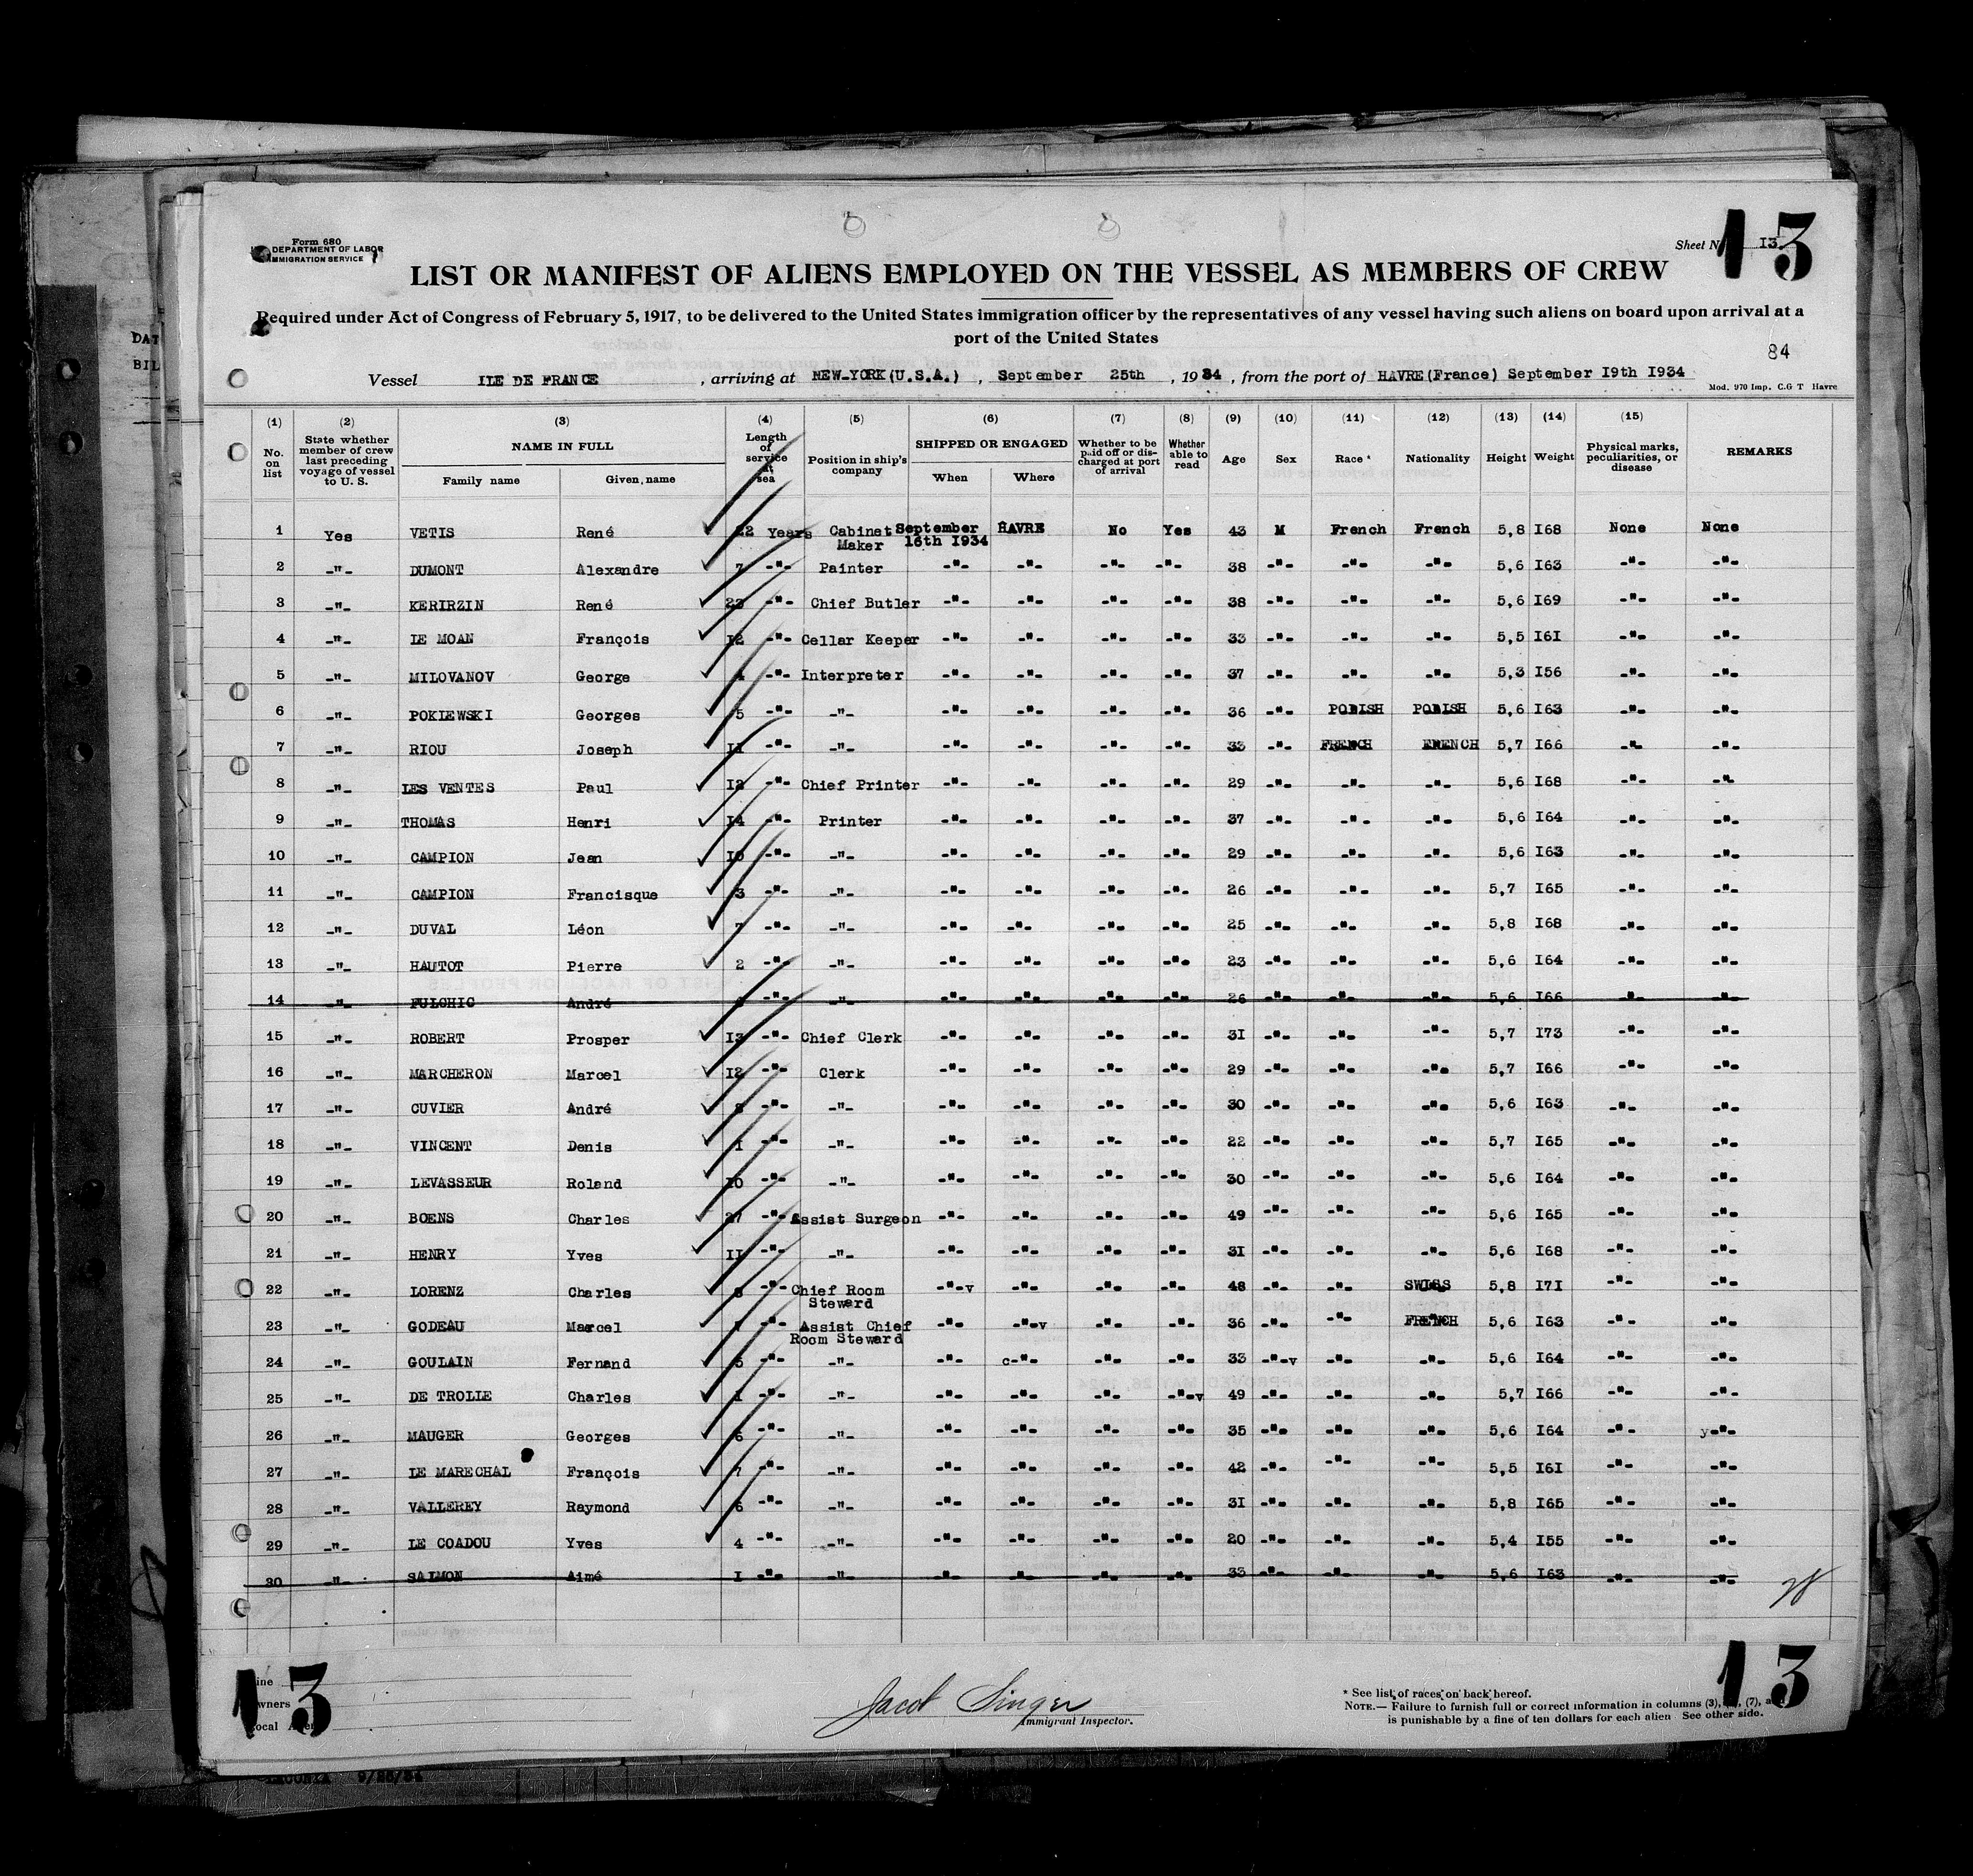 Form 680
DEPARTMENT OF LABOR
IMMIGRATION SERVICE
Sheet N I3.
13
LIST OR MANIFEST OF ALIENS EMPLOYED ON THE VESSEL AS MEMBERS OF CREW
Required under Act of Congress of February 5, 1917, to be delivered to the United States immigration officer by the representatives of any vessel having such aliens on board upon arrival at a
port of the United States
84
Vessel ILE DE FRANCE , arriving at NEW-YORK(U.S.A.) , September 25th , 1934 , from the port of HAVRE(France) September I9th I934
Mod. 970 Imp. C.G T Havre
(1) (2) (3) (4) (5) (6) (7) (8) (9) (10) (11) (12) (13) (14) (15)
No. on list | State whether member of crew last preceding voyage of vessel to U. S. | NAME IN FULL | Family name | Given name | Length of service at sea | Position in ship's company | SHIPPED OR ENGAGED | When | Where | Whether to be paid off or discharged at port of arrival | Whether able to read | Age | Sex | Race * | Nationality | Height | Weight | Physical marks, peculiarities, or disease | REMARKS
1 Yes VETIS René 22 Years Cabinet Maker September 16th I934 HAVRE No Yes 43 M French French 5,8 I68 None None
2 -"- DUMONT Alexandre 7 -"- Painter -"- -"- -"- -"- 38 -"- -"- -"- 5,6 I63 -"- -"-
3 -"- KERIRZIN René 23 -"- Chief Butler -"- -"- -"- -"- 38 -"- -"- -"- 5,6 I69 -"- -"-
4 -"- LE MOAN François I2 -"- Cellar Keeper -"- -"- -"- -"- 33 -"- -"- -"- 5,5 I6I -"- -"-
5 -"- MILOVANOV George 4 -"- Interpreter -"- -"- -"- -"- 37 -"- -"- -"- 5,3 I56 -"- -"-
6 -"- POKIEWSKI Georges 5 -"- -"- -"- -"- -"- -"- 36 -"- POLISH POLISH 5,6 I63 -"- -"-
7 -"- RIOU Joseph II -"- -"- -"- -"- -"- -"- 33 -"- FRENCH FRENCH 5,7 I66 -"- -"-
8 -"- LES VENTES Paul I2 -"- Chief Printer -"- -"- -"- -"- 29 -"- -"- -"- 5,6 I68 -"- -"-
9 -"- THOMAS Henri I4 -"- Printer -"- -"- -"- -"- 37 -"- -"- -"- 5,6 I64 -"- -"-
10 -"- CAMPION Jean I0 -"- -"- -"- -"- -"- -"- 29 -"- -"- -"- 5,6 I63 -"- -"-
11 -"- CAMPION Francisque 3 -"- -"- -"- -"- -"- -"- 26 -"- -"- -"- 5,7 I65 -"- -"-
12 -"- DUVAL Léon 7 -"- -"- -"- -"- -"- -"- 25 -"- -"- -"- 5,8 I68 -"- -"-
13 -"- HAUTOT Pierre 2 -"- -"- -"- -"- -"- -"- 23 -"- -"- -"- 5,6 I64 -"- -"-
14 -"- FULCHIC André -"- -"- -"- -"- -"- -"- 26 -"- -"- -"- 5,6 I66 -"- -"-
15 -"- ROBERT Prosper I3 -"- Chief Clerk -"- -"- -"- -"- 3I -"- -"- -"- 5,7 I73 -"- -"-
16 -"- MARCHERON Marcel I2 -"- Clerk -"- -"- -"- -"- 29 -"- -"- -"- 5,7 I66 -"- -"-
17 -"- CUVIER André 8 -"- -"- -"- -"- -"- -"- 30 -"- -"- -"- 5,6 I63 -"- -"-
18 -"- VINCENT Denis I -"- -"- -"- -"- -"- -"- 22 -"- -"- -"- 5,7 I65 -"- -"-
19 -"- LEVASSEUR Roland I0 -"- -"- -"- -"- -"- -"- 30 -"- -"- -"- 5,6 I64 -"- -"-
20 -"- BOENS Charles 27 -"- Assist Surgeon -"- -"- -"- -"- 49 -"- -"- -"- 5,6 I65 -"- -"-
21 -"- HENRY Yves II -"- -"- -"- -"- -"- -"- 3I -"- -"- -"- 5,6 I68 -"- -"-
22 -"- LORENZ Charles 8 -"- Chief Room Steward -"-v -"- -"- -"- 48 -"- -"- SWISS 5,8 I7I -"- -"-
23 -"- GODEAU Marcel 7 -"- Assist Chief Room Steward -"- -"-v -"- -"- 36 -"- -"- FRENCH 5,6 I63 -"- -"-
24 -"- GOULAIN Fernand 5 -"- -"- -"- c-"- -"- -"- 33 -"-v -"- -"- 5,6 I64 -"- -"-
25 -"- DE TROLLE Charles I -"- -"- -"- -"- -"- -"-v 49 -"- -"- -"- 5,7 I66 -"- -"-
26 -"- MAUGER Georges 6 -"- -"- -"- -"- -"- -"- 35 -"- -"- -"- 5,6 I64 -"- y-"-
27 -"- LE MARECHAL François 7 -"- -"- -"- -"- -"- -"- 42 -"- -"- -"- 5,5 I6I -"- -"-
28 -"- VALLEREY Raymond 6 -"- -"- -"- -"- -"- -"- 3I -"- -"- -"- 5,8 I65 -"- -"-
29 -"- LE COADOU Yves 4 -"- -"- -"- -"- -"- -"- 20 -"- -"- -"- 5,4 I55 -"- -"-
30 -"- SALMON Aimé I -"- -"- -"- -"- -"- -"- 33 -"- -"- -"- 5,6 I63 -"- -"-
28
13
Jacob Singer
Immigrant Inspector.
* See list of races on back hereof.
NOTE.— Failure to furnish full or correct information in columns (3), (7),
is punishable by a fine of ten dollars for each alien See other side.
13